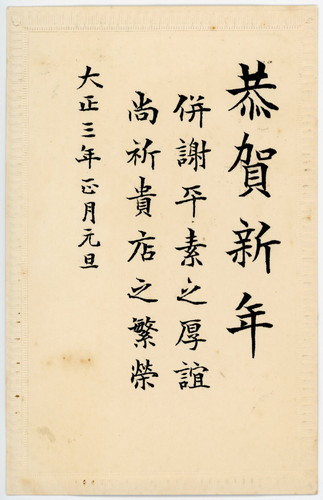 恭賀新年
併謝平素之厚誼
尚祈貴店之繁榮
大正三年正月元旦